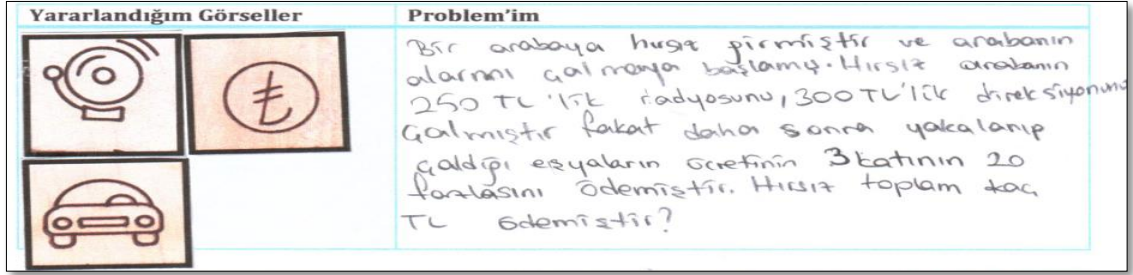 Yararlandığım Görseller
Problem'im
Bir arabaya hırsız girmiştir ve arabanın
alarmı çalmaya başlamış. Hırsız arabanın
250 TL'lik radyosunu, 300 TL'lik direksiyonunu
çalmıştır fakat daha sonra yakalanıp
çaldığı eşyaların ücretinin 3 katının 20
fazlasını ödemiştir. Hırsız toplam kaç
TL ödemiştir?